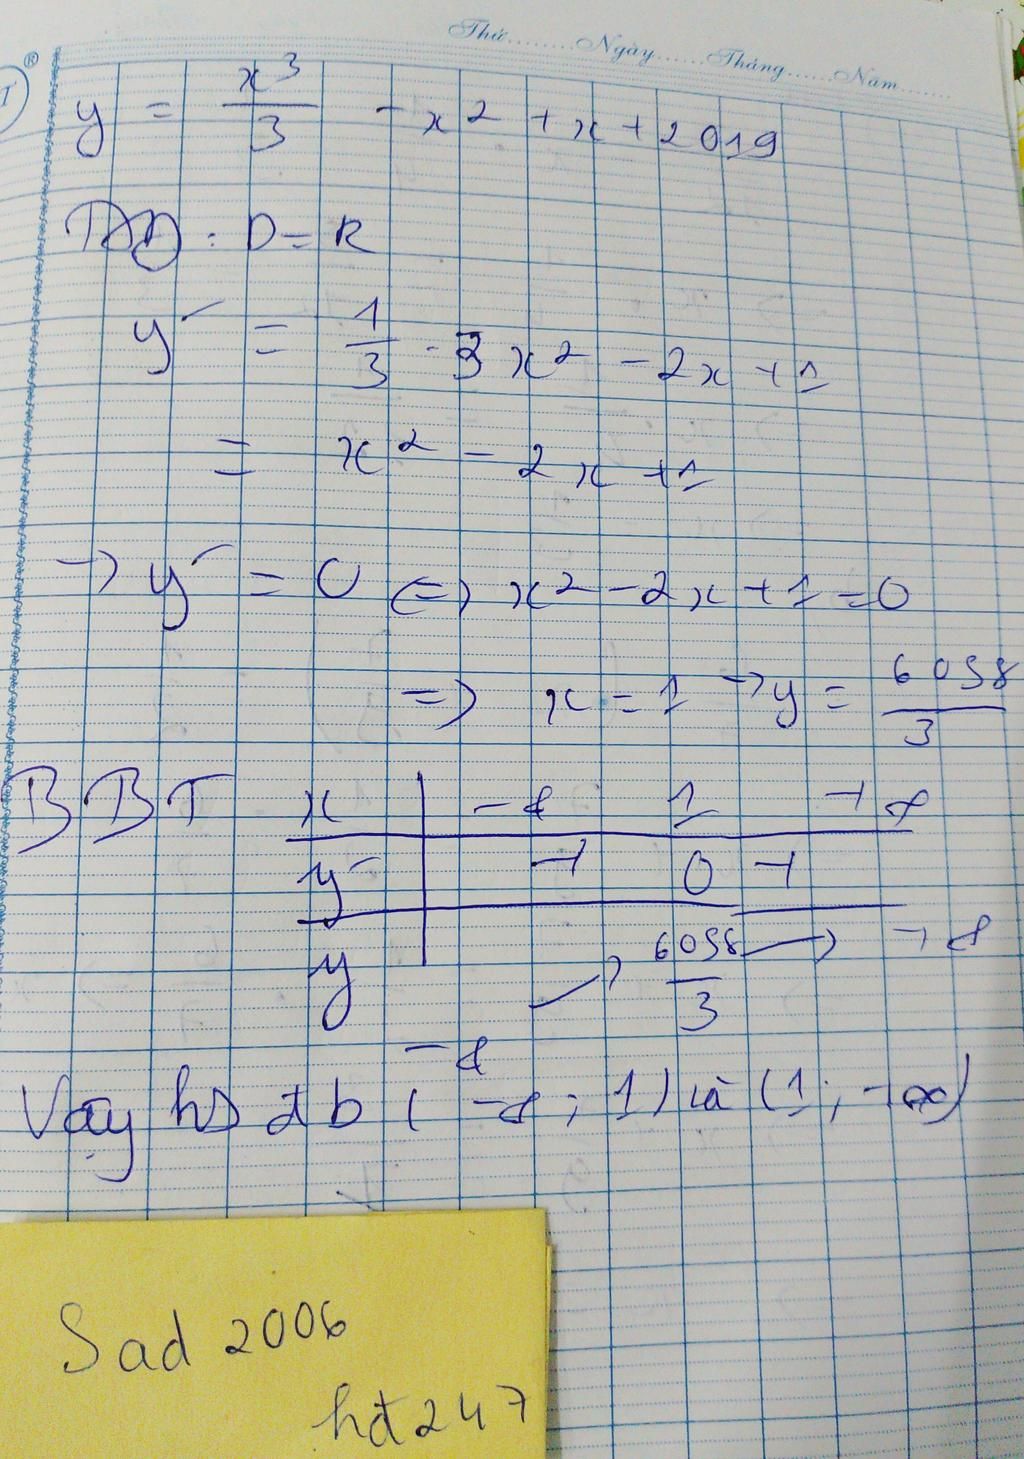 Thứ........Ngày......Tháng......Năm.......
y = x³/3 - x² + x + 2019
TXĐ : D = R
y' = 1/3 . 3x² - 2x + 1
= x² - 2x + 1
→ y' = 0 <=> x² - 2x + 1 = 0
=> x = 1 → y = 6058/3
BBT x -∞ 1 +∞
y' + 0 +
y -∞ ↗ 6058/3 → +∞
Vậy hs đb (-∞ ; 1) và (1 ; +∞)
Sad 2006
hđ247